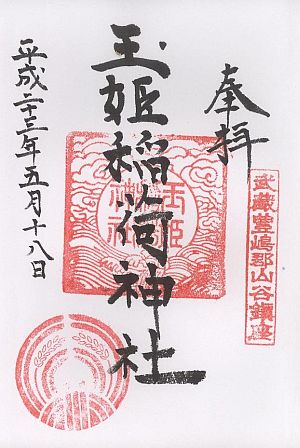 奉拝
武蔵豊嶋郡山谷鎮座
玉姫稲荷神社
平成二十三年五月十八日